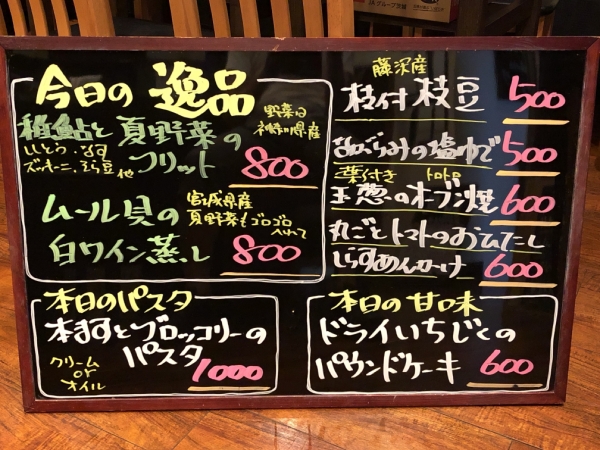 今日の 逸品
稚鮎と 夏野菜の
ししとう、なす
ズッキーニ、そら豆 他
フリット
野菜は
神奈川県産
800
ムール貝の
宮城県産
夏野菜もゴロゴロ
入れて
白ワイン蒸し
800
藤沢産
枝付 枝豆 500
塩ゆで 500
葉付き
玉葱のオーブン焼 600
丸ごとトマトのおひたし
しらすあんかけ 600
本日のパスタ
本ますとブロッコリーの
パスタ
クリーム
or
オイル
1000
本日の甘味
ドライいちじくの
パウンドケーキ 600